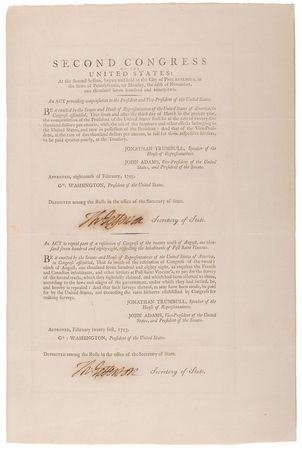 SECOND CONGRESS
OF THE
UNITED STATES:
At the Second Session, begun and held at the City of PHILADELPHIA, in
the State of Pennsylvania, on Monday, the fifth of November,
one thousand seven hundred and ninety-two.
An ACT providing compensation to the President and Vice-President of the United States.
BE it enacted by the Senate and House of Representatives of the United States of America, in
Congress assembled, That from and after the third day of March in the present year,
the compensation of the President of the United States shall be at the rate of twenty-five
thousand dollars per annum, with the use of the furniture and other effects belonging to
the United States, and now in possession of the President: And that of the Vice-Presi-
dent, at the rate of five thousand dollars per annum, in full for their respective services,
to be paid quarter-yearly, at the Treasury.
JONATHAN TRUMBULL, Speaker of the
House of Representatives.
JOHN ADAMS, Vice-President of the United States,
and President of the Senate.
APPROVED, eighteenth of February, 1793.
Go: WASHINGTON, President of the United States.
DEPOSITED among the Rolls in the office of the Secretary of State.
Th: Jefferson Secretary of State.
An ACT to repeal part of a resolution of Congress of the twenty ninth of August, one thou-
sand seven hundred and eighty-eight, respecting the Inhabitants of Post Saint Vincents.
BE it enacted by the Senate and House of Representatives of the United States of America,
in Congress assembled, That so much of the resolution of Congress of the twenty
ninth of August, one thousand seven hundred and eighty eight, as requires the French
and Canadian inhabitants, and other settlers at Post Saint Vincent's, to pay for the survey
of the several tracts, which they rightfully claimed, and which had been allotted to them,
according to the laws and usages of the government, under which they had settled, be,
and hereby is repealed: And that such surveys thereof, as may have been made, be paid
for by the United States, not exceeding the rates heretofore established by Congress for
making surveys.
JONATHAN TRUMBULL, Speaker of the
House of Representatives.
JOHN ADAMS, Vice-President of the United
States, and President of the Senate.
APPROVED, February twenty first, 1793.
Go: WASHINGTON, President of the United States.
DEPOSITED among the Rolls in the office of the Secretary of State.
Th: Jefferson Secretary of State.